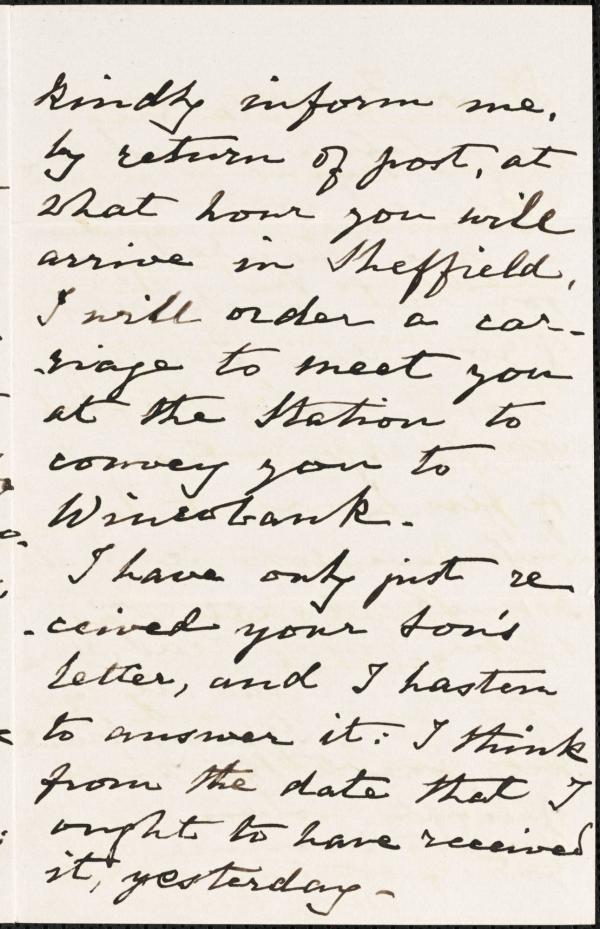 kindly inform me,
by return of post, at
what hour you will
arrive in Sheffield,
I will order a car-
-riage to meet you
at the Station to
convey you to
Wincobank.
I have only just re
-ceived your son's
letter, and I hasten
to answer it: I think
from the date that I
ought to have received
it, yesterday-